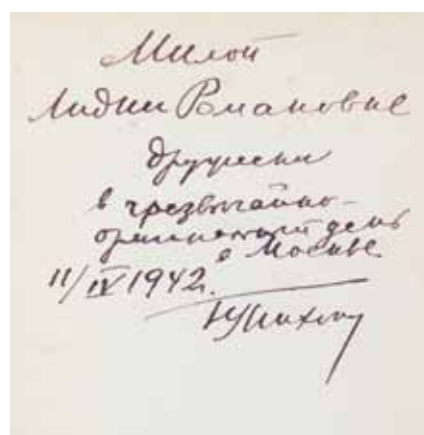 Милой
Лидии Романовне
дружески
в чрезвычайно-
день
в Москве
11/IV 1942.